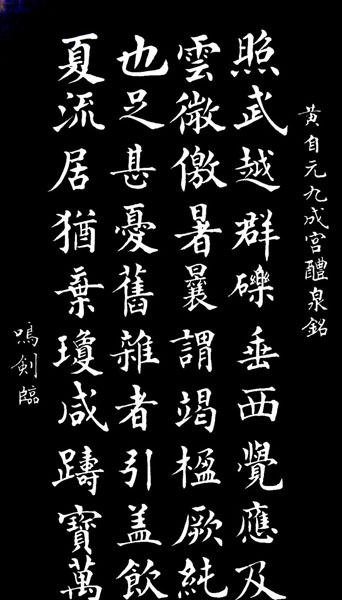 黄自元九成宮醴泉銘
照武越群礫垂西覺應及
雲微儌暑曩謂竭楹厥純
也足甚憂舊雜者引蓋飲
夏流居猶棄瓊咸躊寶萬
鳴剣臨